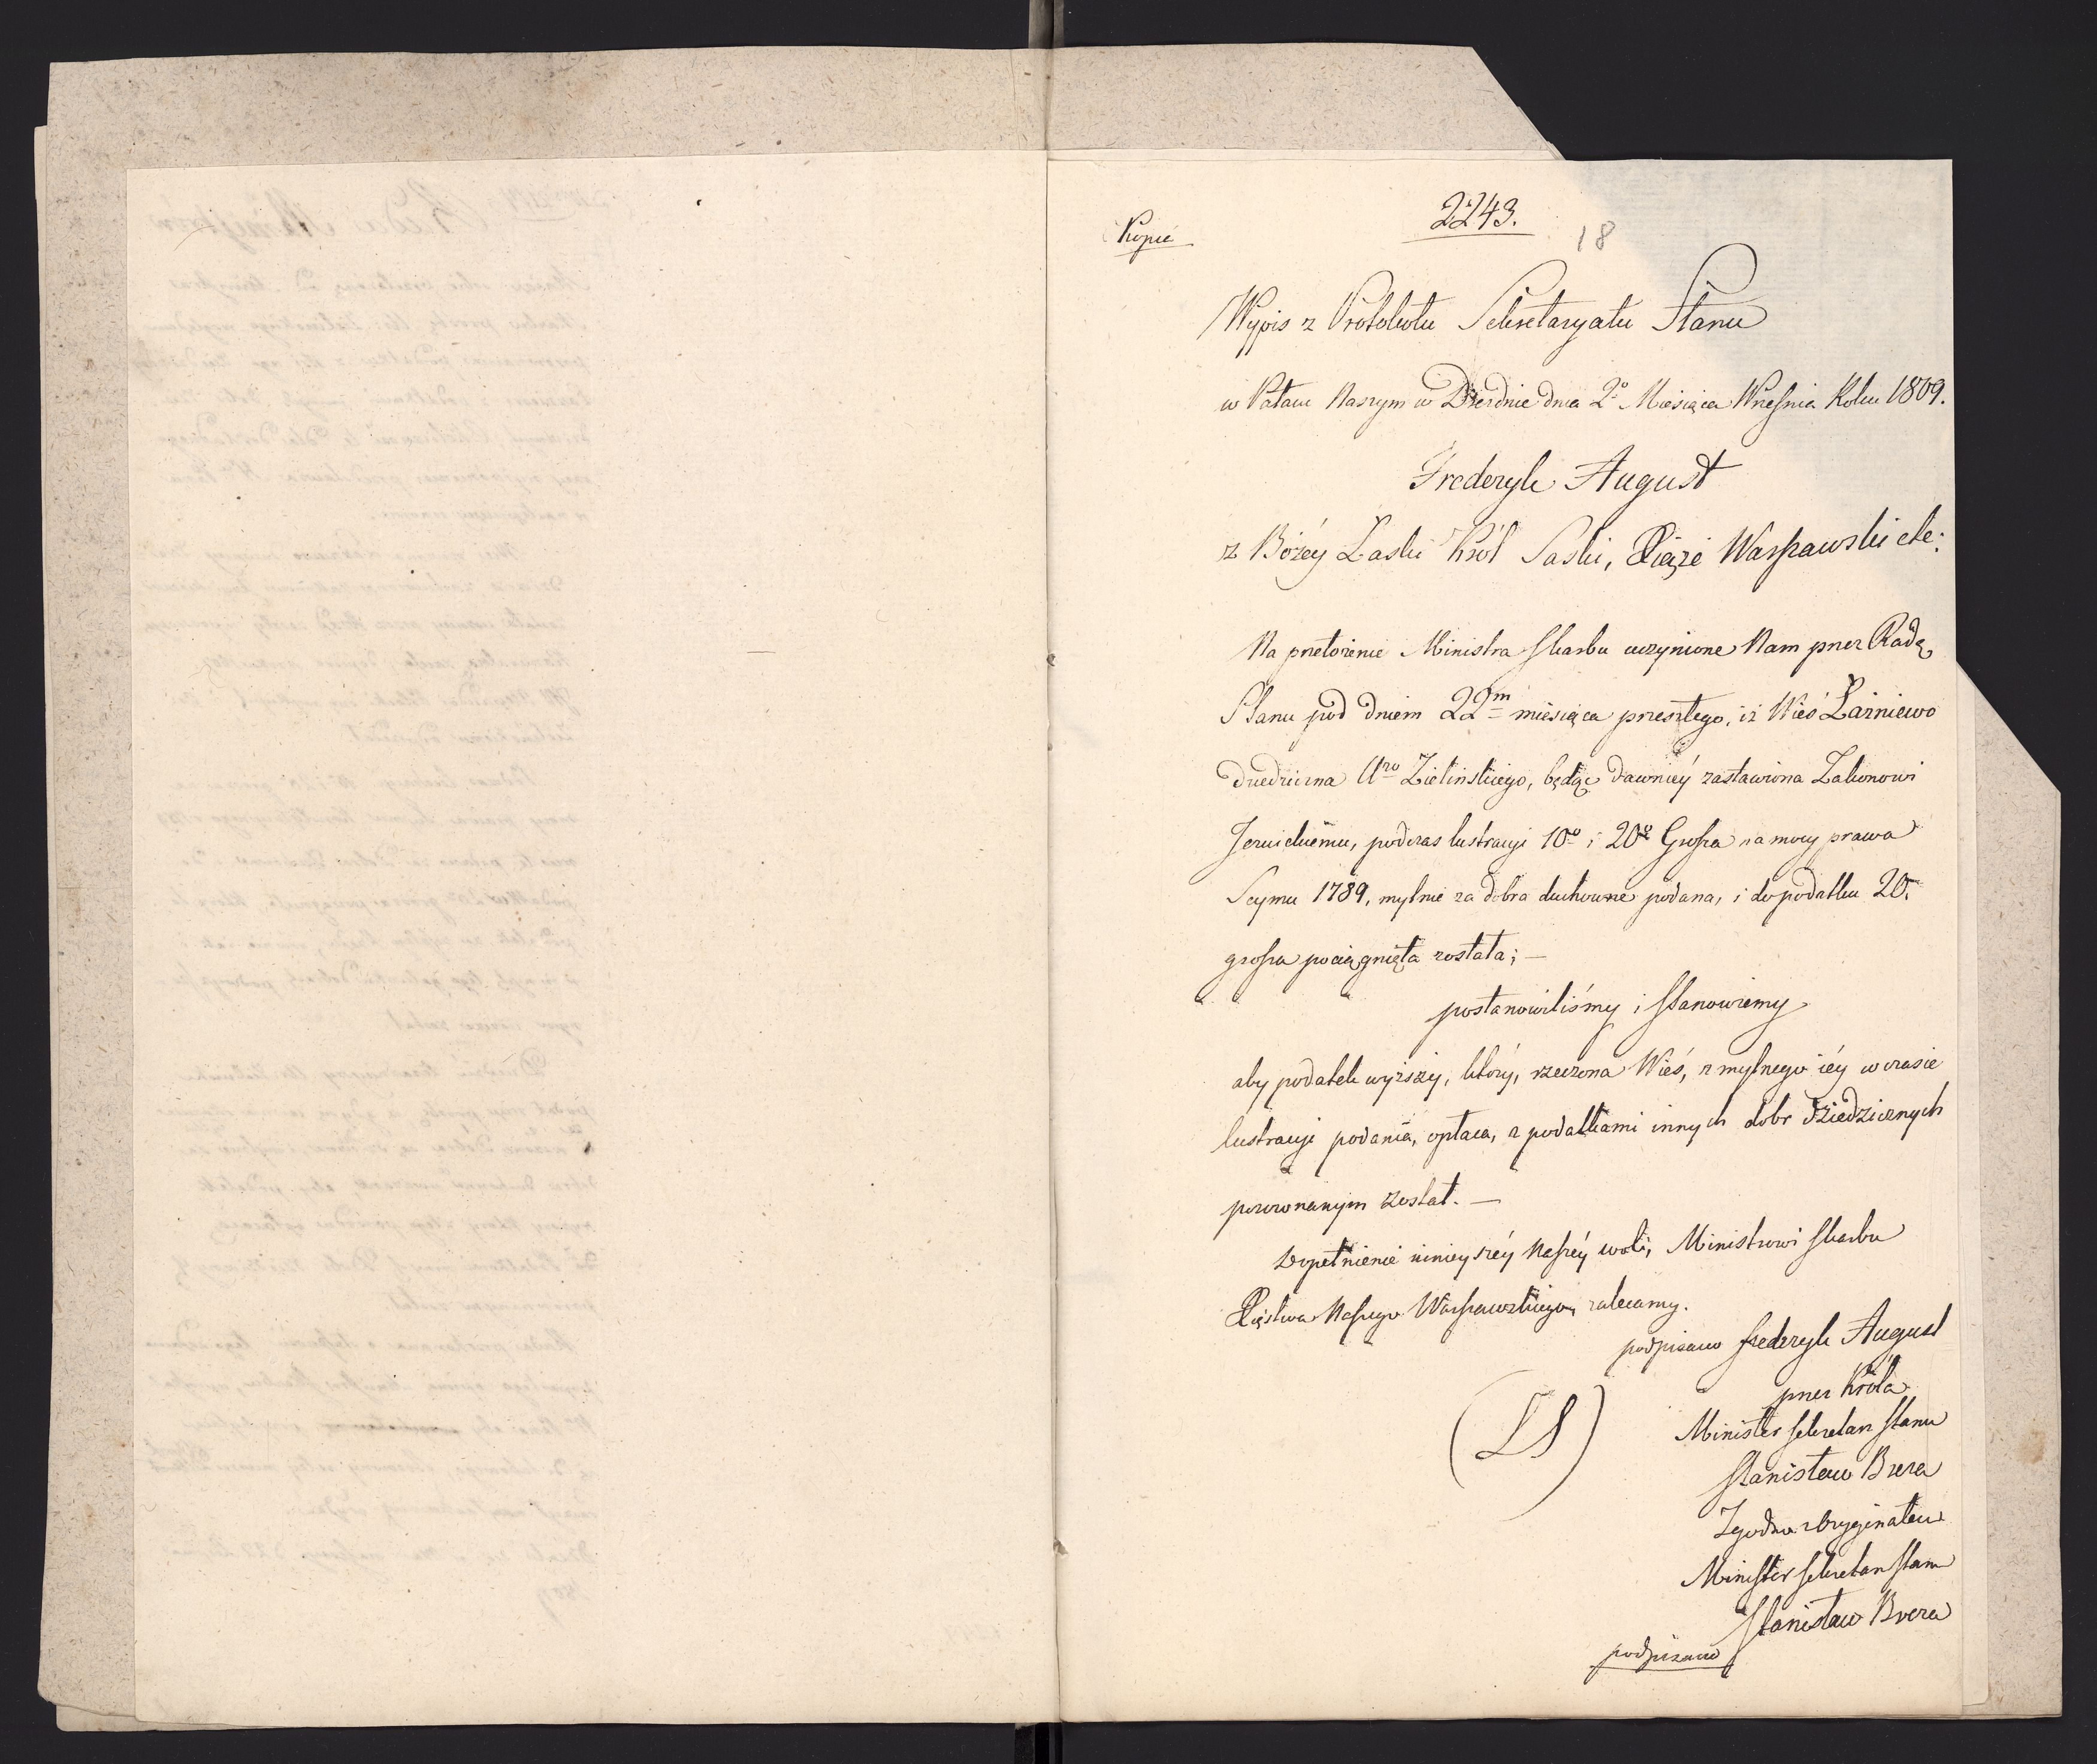 2243.
18
Kopie
Wypis z Protokołu Sekretaryatu Stanu
w Pałacu Naszym w Dreźnie dnia 2º Miesiąca Września Roku 1809.
Frederyk August
z Bożey Łaski Król Saski, Xiąże Warszawski etc:
Na przełożenie Ministra Skarbu uczynione Nam przez Radę
Stanu pod dniem 22m miesiąca przeszłego, iż Wieś Łaźniewo
dziedziczna Uro Zielińskiego, będąc dawniéy zastawiona Zakonowi
Jezuickiemu, podczas lustracyi 10º i 20º Grosza na mocy prawa
Seymu 1789, mylnie za dobra duchowne podana, i do podatku 20.
grosza pociągnięta została; —
postanowiliśmy i stanowiemy
aby podatek wyższy, który, rzeczona Wieś, z mylnego iéy w czasie
lustracyi podania, opłaca, z podatkami innych dobr dziedzicznych
porownanym został. —
Dopełnienie ninieyszéy Naszéy woli, Ministrowi Skarbu
Xięstwa Naszego Warszawskiego, zalecamy.
podpisano Frederyk August
przez Króla
Minister Sekretarz Stanu
(LS)
Stanisław Breza
Zgodno z Oryginałem
Minister Sekretarz Stanu
Stanisław Breza
podpisano